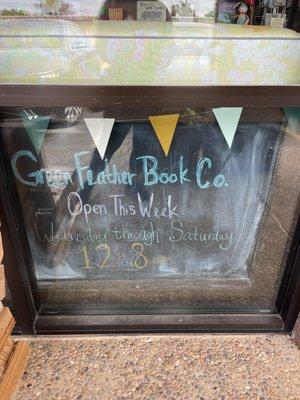 Green Feather Book Co.
Open This Week
Wednesday through Saturday
12 to 8 pm